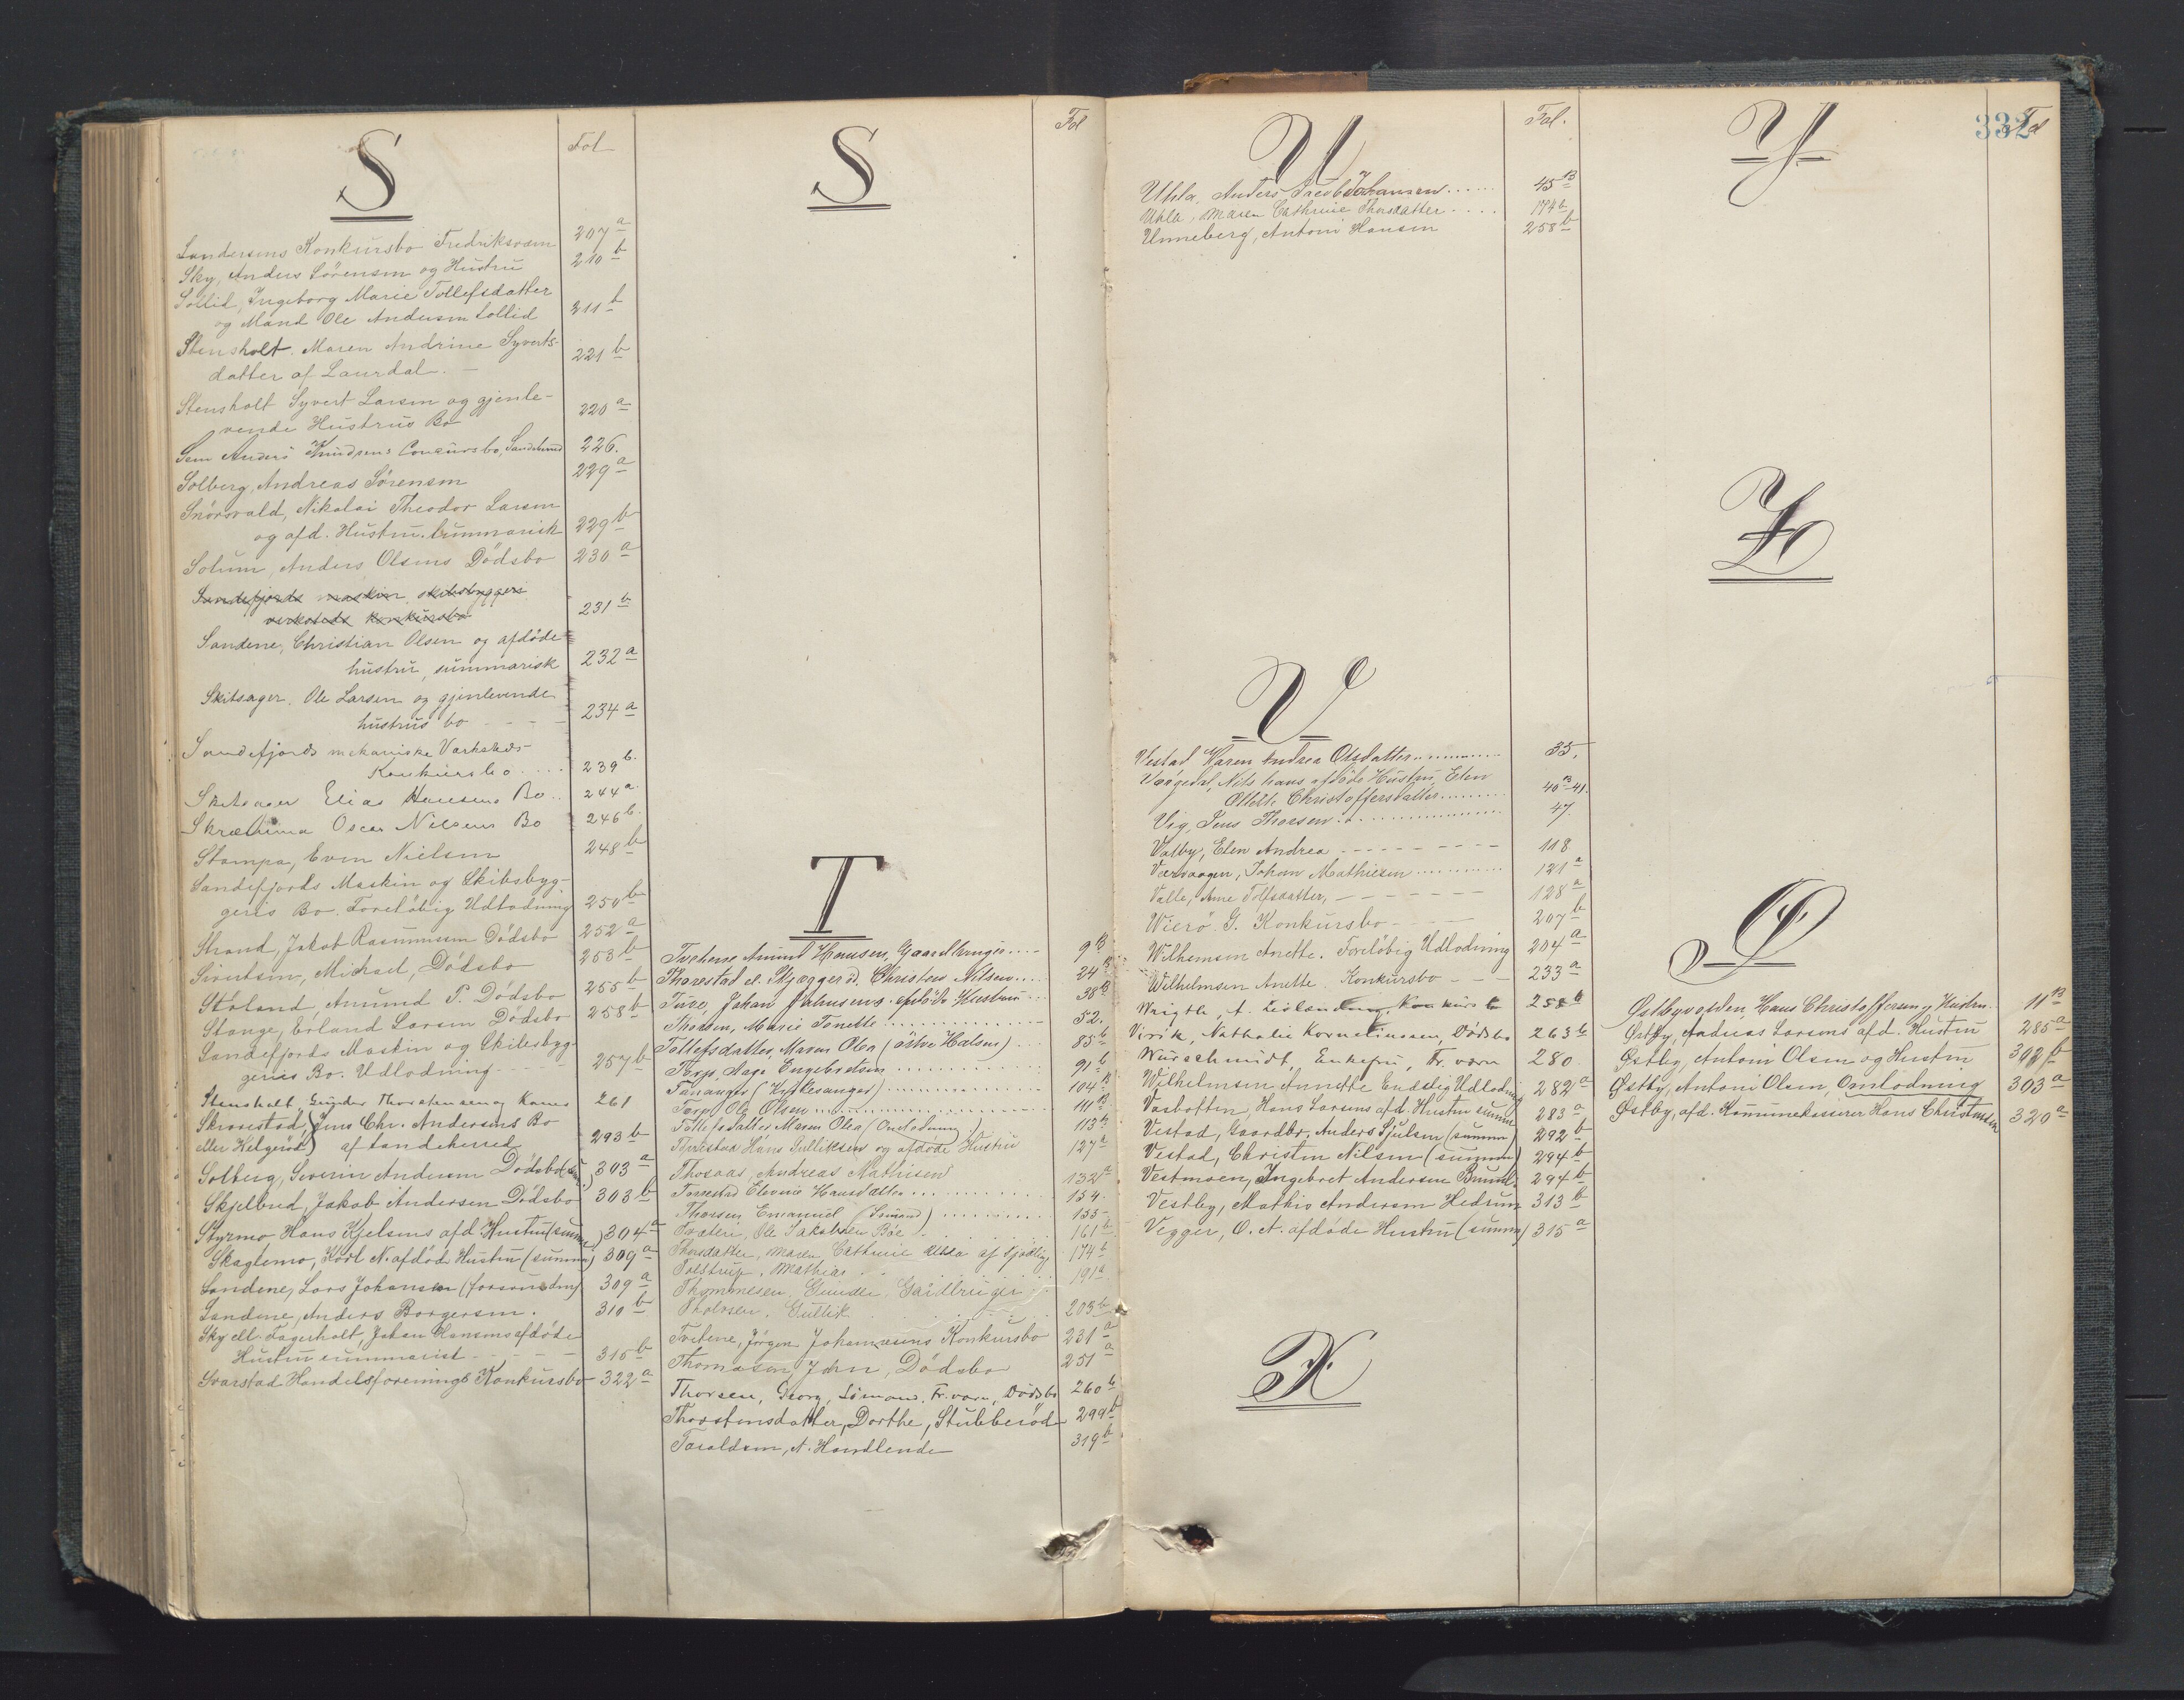 S
Fol
Sandersens Konkursbo Fredriksværn 207 a
Sky, Anders Sörensen og Hustru 210 b
Sollid, Ingeborg Marie Tollefsdatter
og Mand Ole Andersen Sollid 211 b
Stensholt. Maren Andrine Syverts-
datter af Laurdal. 221 b
Stensholt Syvert Larsen og gjenle-
vende Hustrus Bo 220 a
Sem Anders Knudsens Concursbo, Sandeherred 226.
Solberg, Andreas Sörensen 229 a
Snörsvald, Nikolai Theodor Larsen
og afd. Hustru. Summarisk 229 b
Solum, Anders Olsens Dödsbo 230 a
Sandefjords maskin skibsbyggeri
verksteds konkursbo 231 b
Sandene, Christian Olsen og afdöde
hustru, summarisk 232 a
Skitsager. Ole Larsen og gjenlevende
hustrus bo 234 a
Sandefjords mekaniske Værksteds-
Konkursbo 239 b.
Skitsager Elias Hansens Bo 244 a.
Oscar Nilsens Bo 246 b.
Stampa, Even Nielsen 248 b
Sandefjords Maskin og Skibsbyg-
geris Bo. Foreløbig Udlodning 250 b
Strand, Jakob Rasmussen Dödsbo 252 a
Sivertsen, Michael, Dödsbo 253 b
Stöland, Amund P. Dödsbo 255 b
Stange, Erland Larsen Dödsbo 258 b
Sandefjords Maskin og Skibsbyg-
geris Bo. Udlodning 257 b
Stensholt, Gunder Thorstensen og Kones 261
Skovestad, Jens Chr. Andersens Bo
eller Helgeröd) af Sandeherred 293 b
Solberg, Severin Andersen Dödsbo 303 a
Skjelbred, Jakob Andersen Dödsbo 303 b
Styrmo Hans Kjelsens afd. Hustru (summ) 304 a
Skagtemo, Karl N. afdöde Hustru (summ) 309 a
Sandene, Lars Johansen (forsvunden) 309 a
Sandene, Anders Borgersen. 310 b
Sky ell. Fagerholt, Johan Hansens afdöde
Hustru summarisk 315 b
Svarstad Handelsforenings Konkursbo 322 a
S
Fol
T
Tvetene Amund Hansen, Gaardbruger 9 B
Thorestad el. Skjæggerö. Christen Nilsen 24 B
Tuve, Johan Johnsens afdöde Hustru 38 B
Thorsen, Marie Tonette 52.
Tollefsdatter, Maren Olea (østre Halsen) 85 b
Torp, Aage Engebretsen 91 b
Tananger (Kirkesanger) 104 B
Torp Ole Olsen 111 B
Tollefsdatter Maren Olea (Omlodning) 113 b
Thorestad Hans Gulliksen og afdöde Hustru 127 a
Thosaas, Andreas Mathisen 132 a
Torrestad Elevine Hansdatter 154.
Thorsen Emanuel (Sömand) 155
Tvæten, Ole Jakobsen Bøe 161 b
Thorsdatter, Maren Cathrine Uhla af Tjodling 174 b
Tolstrup, Mathias 191 a
Thommesen, Gunder Gaardbruger
Tholvsen. Gullik 203 b
Tvetene, Jörgen Johannesens Konkursbo 231 a
Thomasen John, Dödsbo 251 a
Thorsen, Georg, Sömand, Fr.værn, Dödsbo 260 b
Thorstensdatter, Dorthe, Stubberöd 299 b
Taraldsen, A. Handlende 319 b
U
Fol.
Uhla, Anders Jacob Johansen 45 B
Uhla, Maren Cathrine Thorsdatter 174 b
Unneberg, Anton Hansen 258 b
V
Vestad, Karen Andrea Olsdatter 35.
Nils Hans afdöde Hustru, Elen
Olette Christoffersdatter 40 B 41.
Vig, Jens Thorsen 47.
Valby, Elen Andrea 118
Værvaagen, Johan Mathiesen 121 a
Valle, Anne Tolfsdatter, 128 a
Wierö G. Konkursbo 207 b
Wilhemsen Anette. Foreløbig Udlodning 204 a
Wilhelmsen Anette Konkursbo 233 a
Wrigth, A. Konkursb 258 b
Virik, Nathalie Korneliussen, Dødsbo 263 b
Würschmidt, Enkefru, Fr.værn 280
Wilhelmsen Annette Endelig Udlodning 282 a
Vasbotten, Hans Larsens afd. Hustru summ 283 a
Vestad, Gaardbr. Anders Sjulsen (summ) 292 b
Vestad, Christen Nilsen (summ) 294 b
Vestmoen, Ingebret Andersen Brunl. 294 b
Vestby, Mathis Andersen Hedrum 313 b
Vegger, O. A. afdøde Hustru (summ) 315 a
X
Y
332
Fol
Z
Ø
Østbyvolden, Hans Christoffersen og Hustru. 11 B
Østby, Andreas Larsens afd. Hustru 285 a
Østby, Anton Olsen og Hustru 302 b
Østby, Anton Olsen, Omlodning 303 a
Østby, afd. Kommunekasserer Hans Christensen 320 a